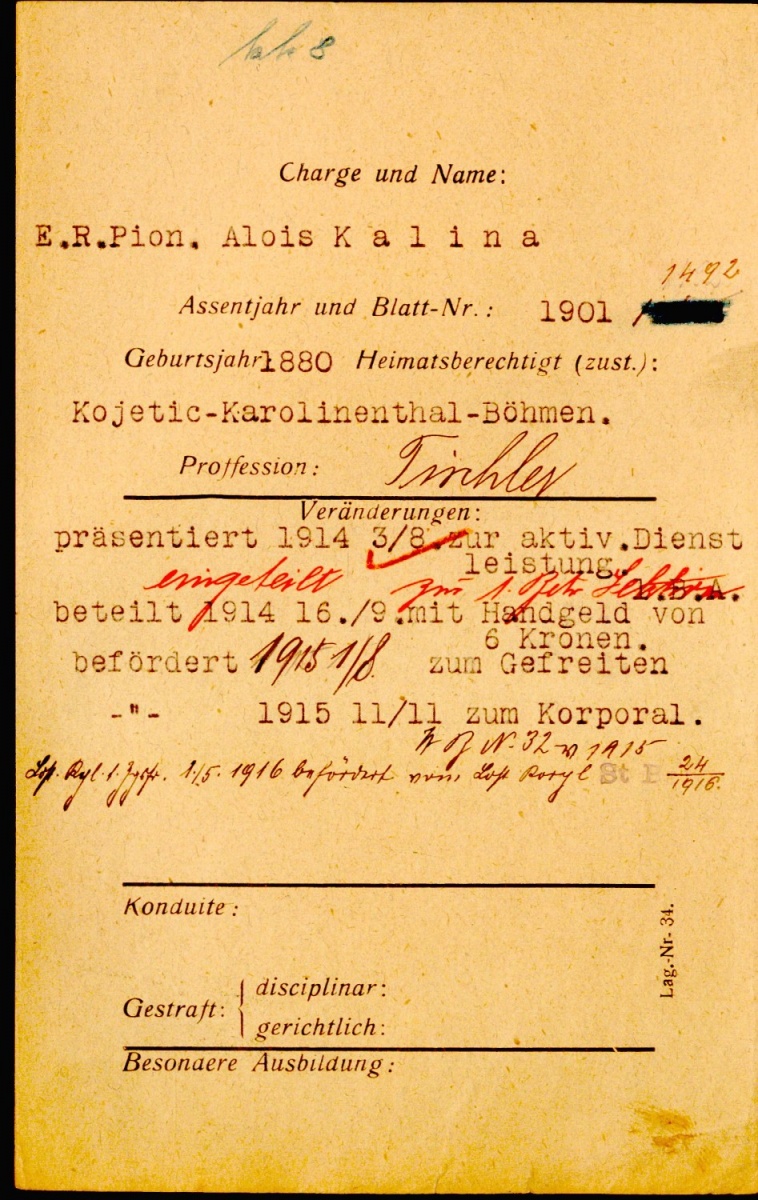 8
Charge und Name:
E.R.Pion. Alois K a l i n a
1492
Assentjahr und Blatt-Nr.: 1901 /
Geburtsjahr 1880 Heimatsberechtigt (zust.):
Kojetic-Karolinenthal-Böhmen.
Proffession: Tischler
Veränderungen:
präsentiert 1914 3/8.zur aktiv.Dienst
leistung.
eingeteilt zur 1.
beteilt 1914 16./9.mit Handgeld von
6 Kronen.
befördert 1915 1/8 zum Gefreiten
-"- 1915 11/11 zum Korporal.
N° 32 v 1915
1./5. 1916 befördert vom St B 24/1916.
Konduite:
Gestraft: { disciplinar:
gerichtlich:
Besondere Ausbildung:
Lag.-Nr- 34.